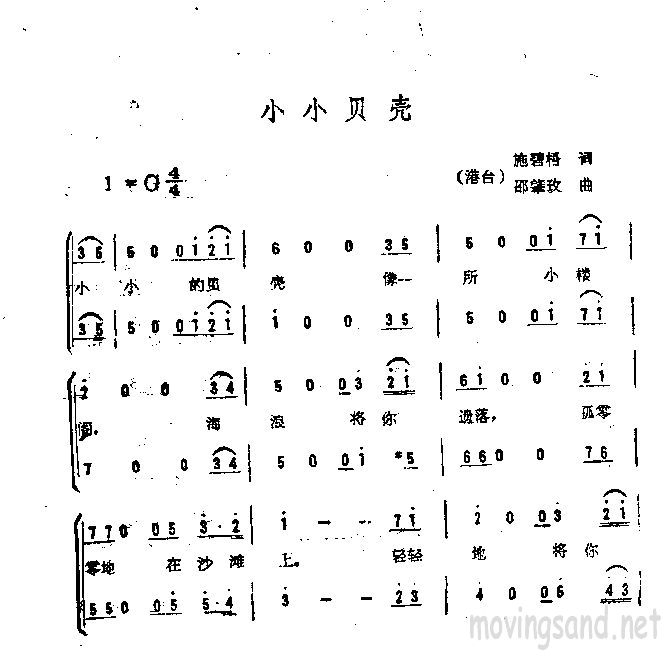 小小贝壳
1=G 4/4
(港台) 施碧梧 词
邵肇玫 曲
3 5 | 5 0 0 1 2 1 | 6 0 0 3 5 | 5 0 0 1 7 1
小 小 的贝 壳 像-- 所 小 楼
3 5 | 5 0 0 1 2 1 | 1 0 0 3 5 | 5 0 0 1 7 1
2 0 0 3 4 | 5 0 0 3 2 1 | 6 1 0 0 2 1
阁, 海 浪 将你 遗落, 孤零
7 0 0 3 4 | 5 0 0 1 #5 | 6 6 0 0 7 6
7 7 0 0 5 3 · 2 | 1 - - 7 1 | 2 0 0 3 2 1
零地 在沙滩 上。 轻轻 地 将你
5 5 0 0 5 5 · 4 | 3 - - 2 3 | 4 0 0 6 4 3
movingsand.net